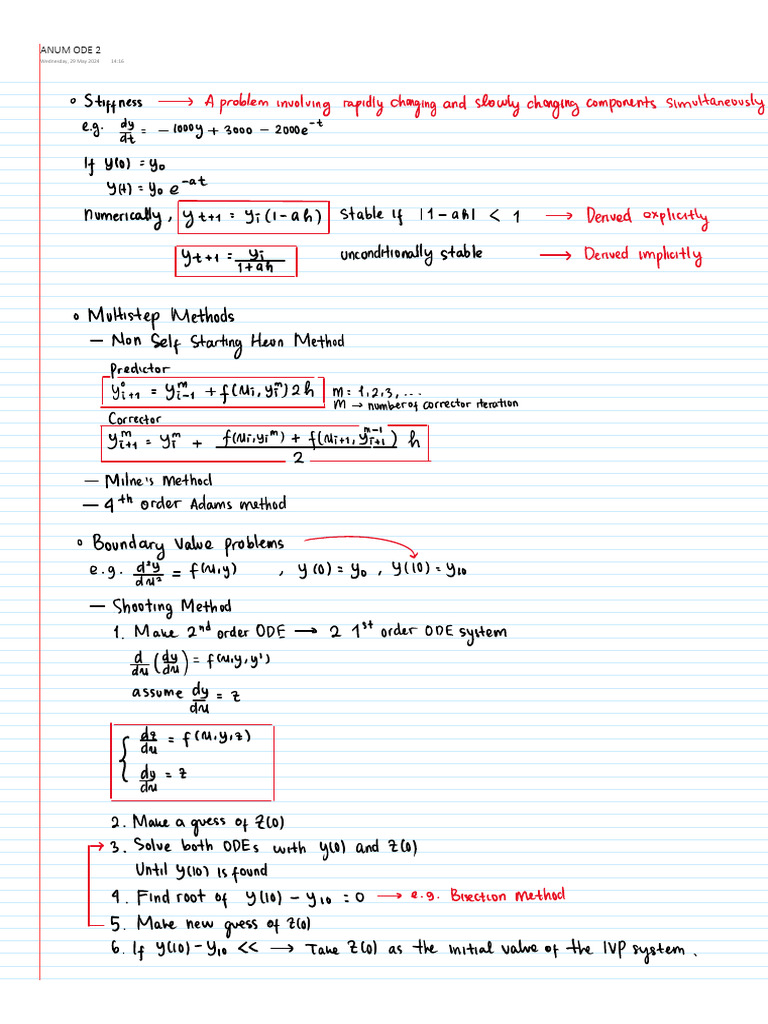 ANUM ODE 2
Wednesday, 29 May 2024 14:16
• Stiffness → A problem involving rapidly changing and slowly changing components simultaneously
e.g. dy/dt = -1000y + 3000 - 2000e^-t
If y(0) = y₀
y(t) = y₀ e^-at
Numerically, y t+1 = yi (1-ah) Stable if |1-ah| < 1 → Derived explicitly
y t+1 = yi/(1+ah) unconditionally stable → Derived implicitly
• Multistep Methods
— Non Self Starting Heun Method
Predictor
y⁰i+1 = y^m i-1 + f(xi, yi^m) 2h m = 1,2,3, ...
m → number of corrector iteration
Corrector
y^m i+1 = yi^m + (f(xi,yi^m) + f(xi+1, y^m-1 i+1))/2 h
— Milne's Method
— 4th order Adams method
• Boundary Value problems
e.g. d²y/dx² = f(x,y) , y(0) = y₀ , y(10) = y₁₀
— Shooting Method
1. Make 2nd order ODE → 2 1st order ODE system
d/dx (dy/dx) = f(x,y,y')
assume dy/dx = z
{ dz/dx = f(x,y,z)
dy/dx = z
2. Make a guess of z(0)
3. Solve both ODEs with y(0) and z(0)
Until y(10) is found
4. Find root of y(10) - y₁₀ = 0 → e.g. Bisection Method
5. Make new guess of z(0)
6. If y(10) - y₁₀ << → Take z(0) as the initial value of the IVP system.